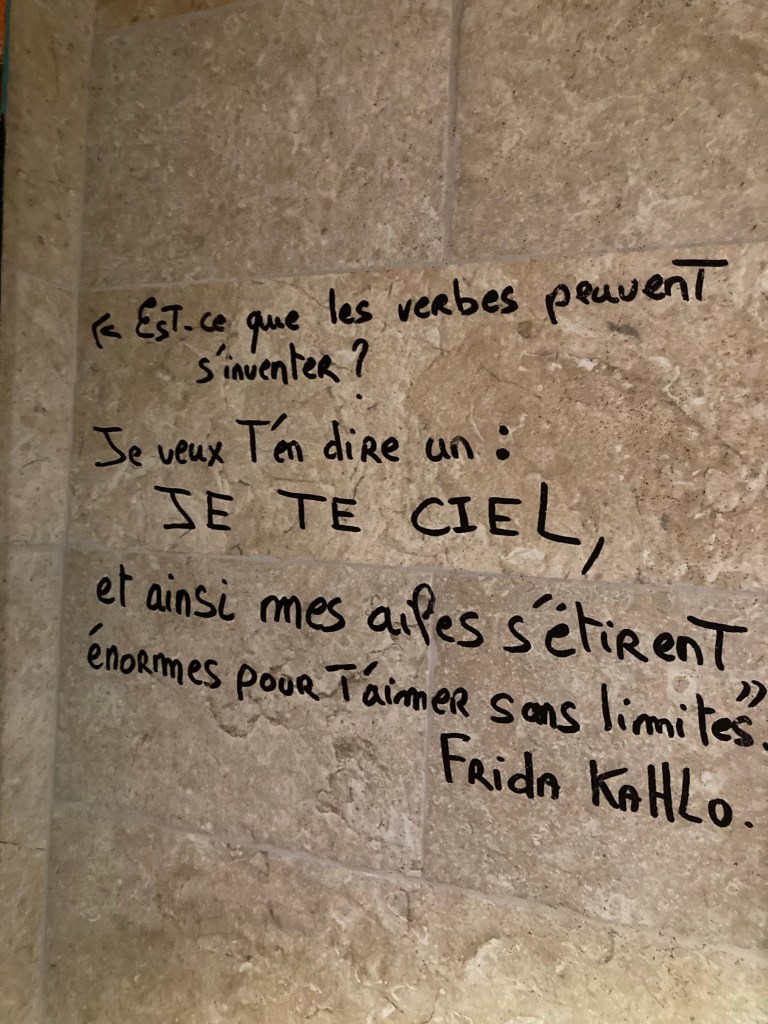 « Est-ce que les verbes peuvent
s'inventer ?
Je veux t'en dire un :
JE TE CIEL,
et ainsi mes ailes s'étirent
énormes pour t'aimer sans limites ».
Frida Kahlo.